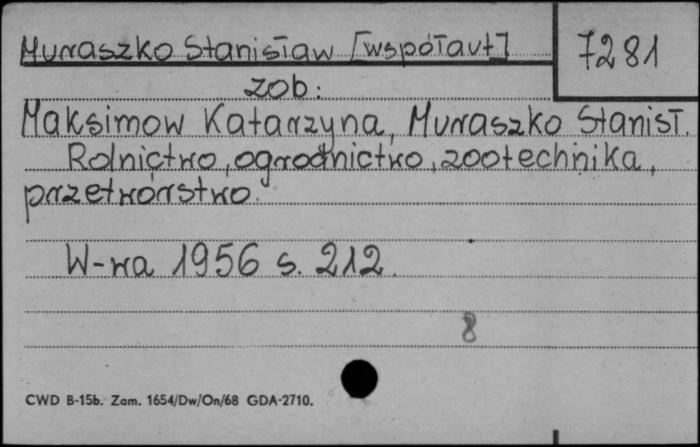 Muraszko Stanisław [współaut] 7281
zob:
Maksimow Katarzyna, Muraszko Stanisł.
Rolnictwo, ogrodnictwo, zootechnika,
przetwórstwo.
W-wa 1956 s. 212.
8
CWD B-15b. Zam. 1654/Dw/On/68 GDA-2710.